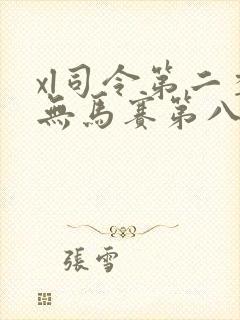 xl司令第二
無馬賽第八
張雪